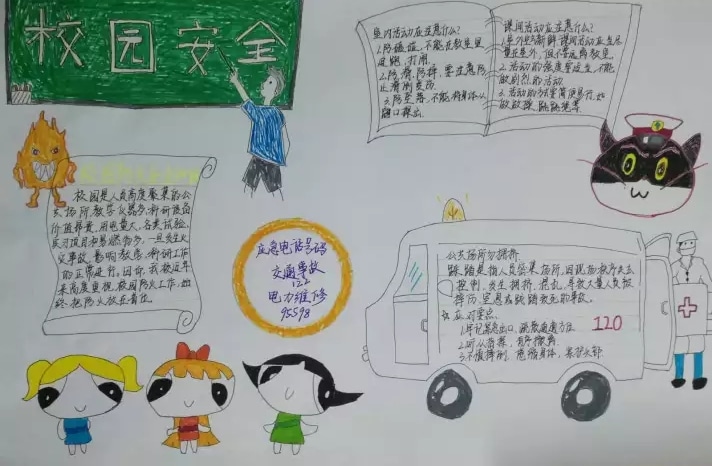 校园安全
室内活动应注意什么?
1.防磕碰,不能在教室里
追跑、打闹。
2.防滑、防摔,要注意防
止滑倒受伤。
3.防坠落,不能将身体从
窗口探出。
课间活动应注意什么?
1.室外空气新鲜,课间活动应当尽
量在室外,但不要远离教室。
2.活动的强度要适当,不能
做剧烈的活动。
3.活动的方式要简便易行,如
做做操、跳跳绳等。
校园是人员高度聚集的公
共场所,教学仪器多,科研设备
价值昂贵,用电量大,各类试验、
实习项目和易燃物多,一旦发生火
灾事故,影响教学、科研工作
的正常进行。因而,我校近年
来高度重视,校园防火工作,始
终把防火放在首位。
应急电话号码
交通事故
122
电力维修
95598
公共场所勿拥挤
踩踏是指人员密集场所,因现场秩序失去
控制,发生拥挤、混乱,导致大量人员被
挤伤、窒息或踩踏致死的事故。
应对要点
1.牢记紧急出口,疏散通道方位
2.听从指挥,有序撤离
3.不慎摔倒,卷缩身体,紧护头部
120